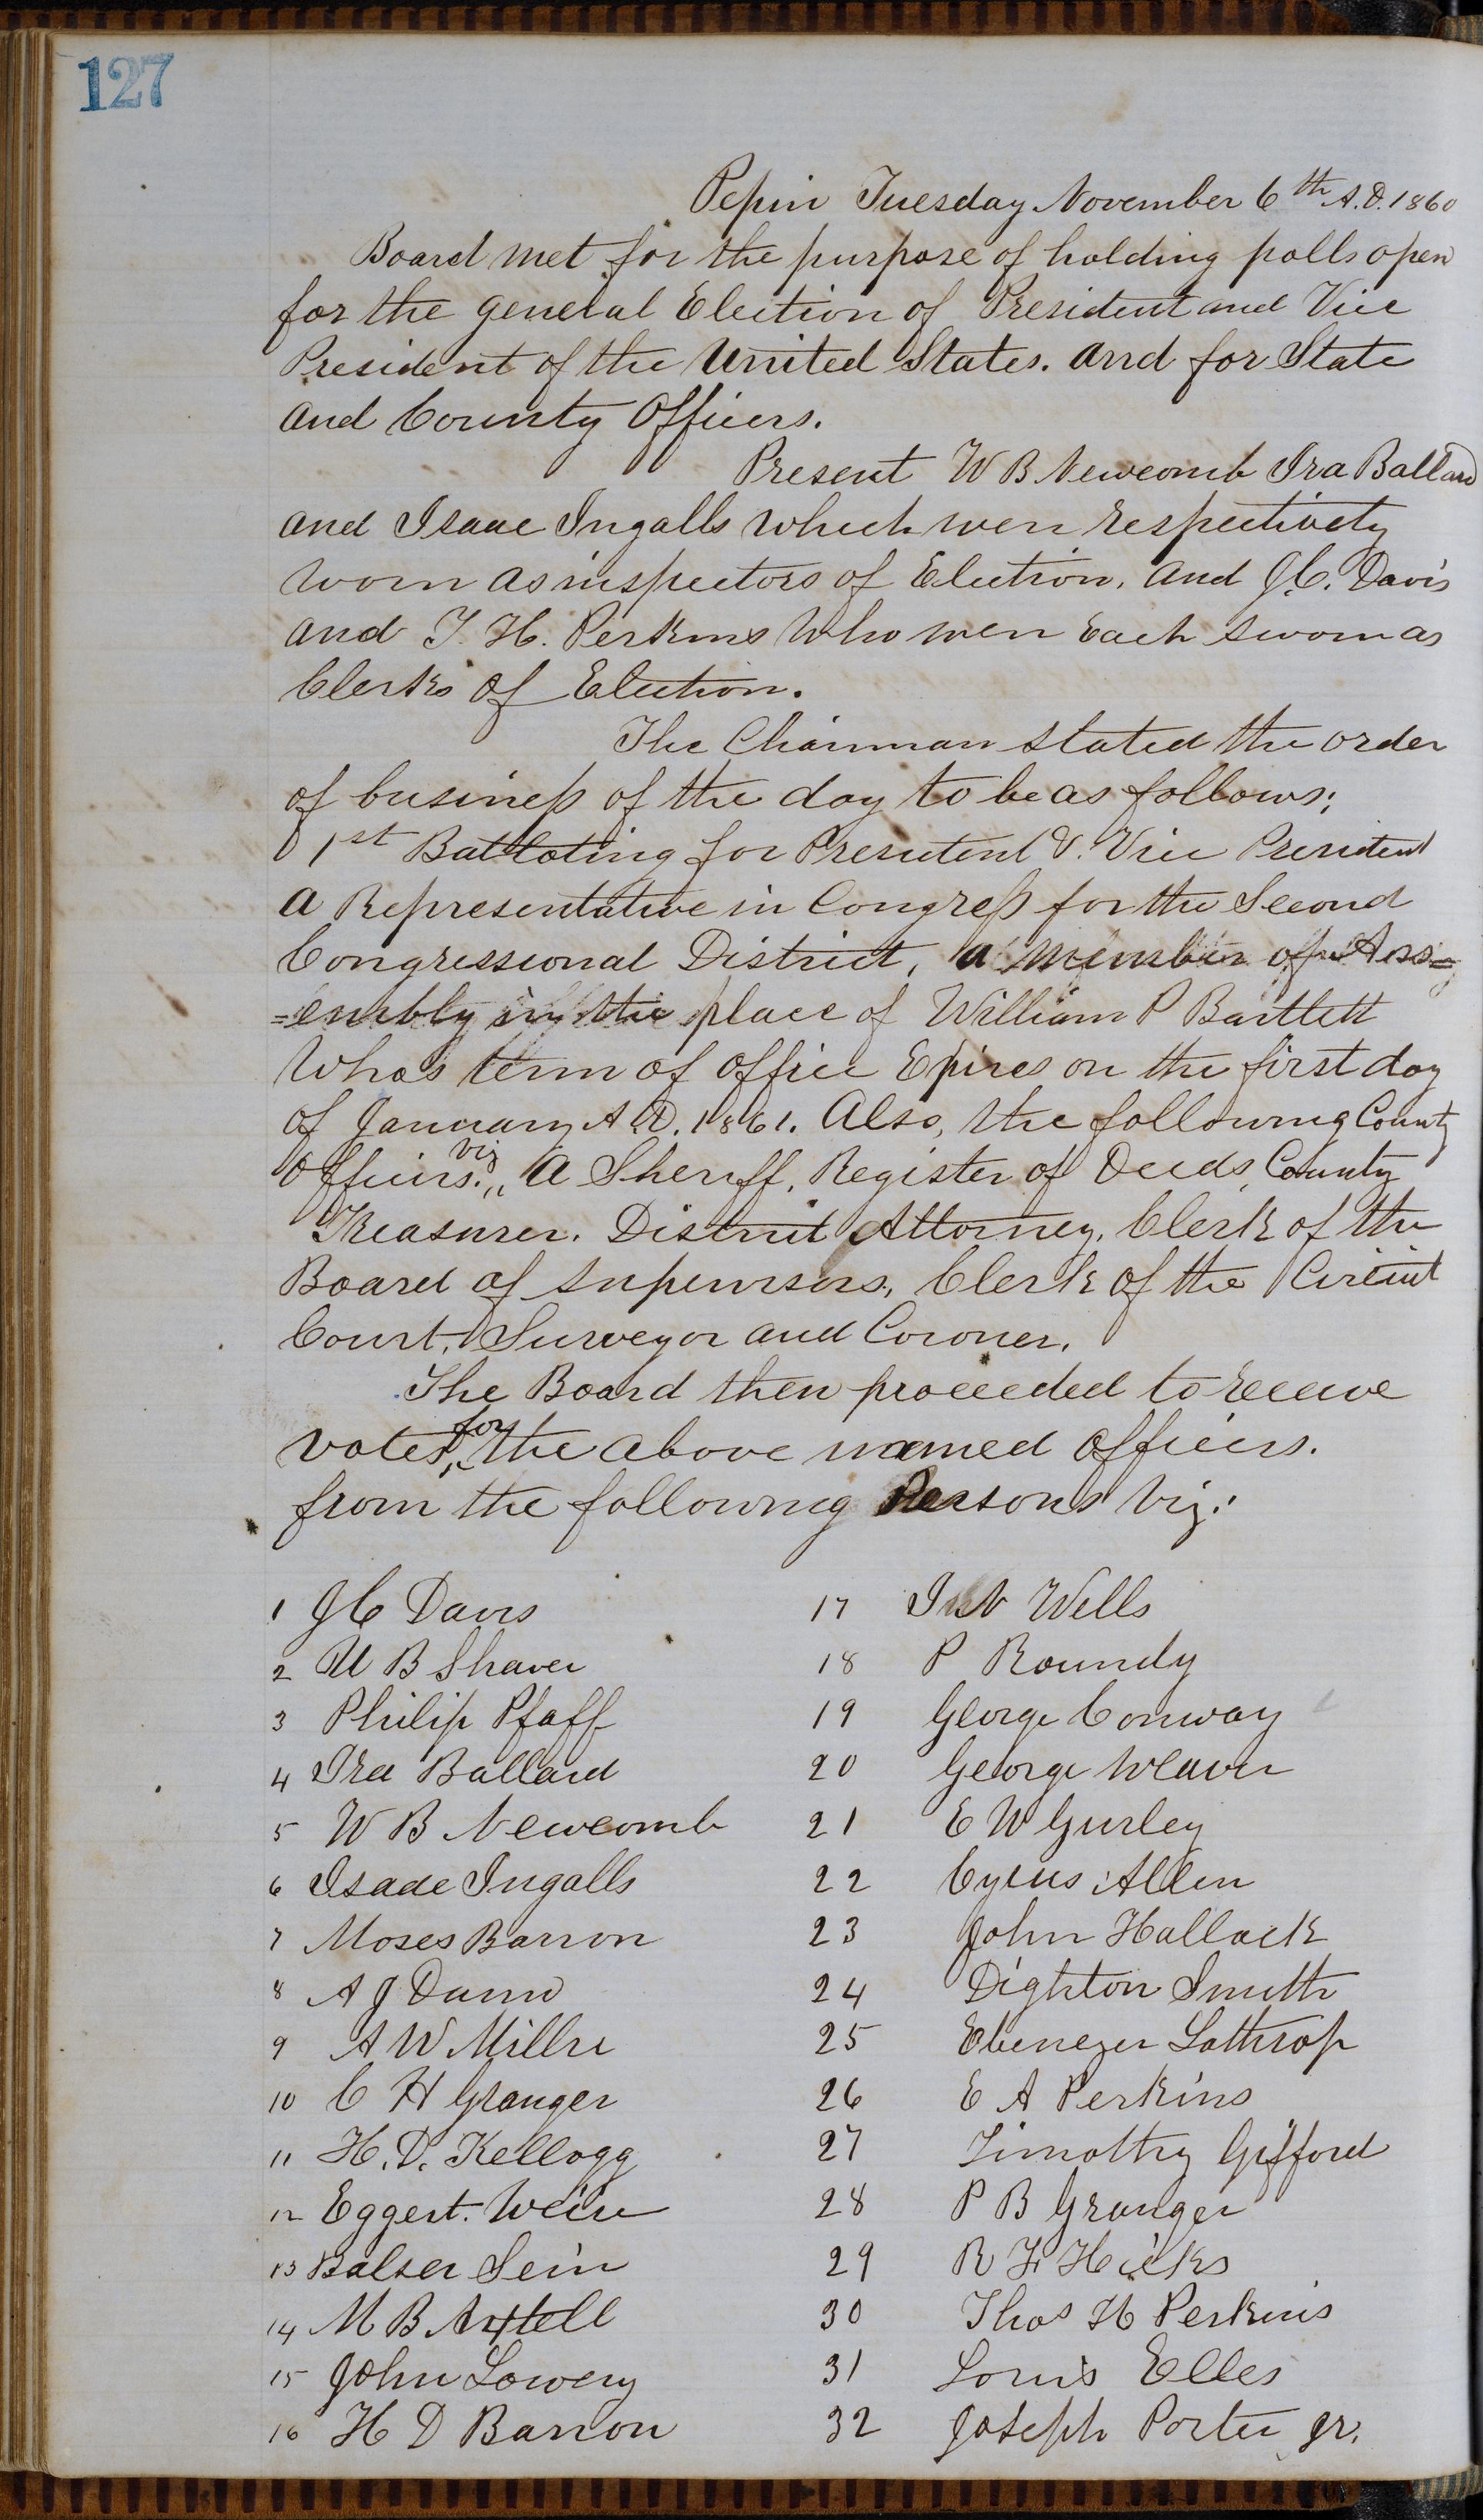 127
Pepin Tuesday November 6th A.D. 1860
Board met for the purpose of holding polls open
for the general Election of President and Vice
President of the United States. and for State
and County Officers.
Present W B Newcomb Ira Ballard
and Isaac Ingalls which were respectively
worn as inspectors of Election. and J.C. Davis
and T. H. Perkins who were Each sworn as
Clerks of Election.
The Chairman stated the order
of business of the day to be as follows;
1st Balloting for President & Vice President
a Representative in Congress for the Second
Congressional District, a member of Ass=
=embly in the place of William P Bartlett
Whos term of office Epires on the first day
of January A.D. 1861. Also, the following County
Officers. viz A Sheriff, Register of Deeds, County
Treasurer. District Attorney, Clerk of the
Board of Supervisors, Clerk of the Circuit
Court, Surveyor and Coroner.
The Board then proceeded to receive
votes for the above named officers.
from the following Persons viz:
1 J C Davis
2 U B Shaver
3 Philip Pfaff
4 Ira Ballard
5 W B Newcomb
6 Isaac Ingalls
7 Moses Barron
8 A J Dunn
9 A W Miller
10 C H Granger
11 H. D. Kellogg
12 Eggert
13 Balser Sein
14 M B Axtell
15 John Lowery
16 H D Barron
17 Wells
18 P Roundy
19 George Conway
20 George Weaver
21 E W Gurley
22 Cyrus Allen
23 John Hallack
24 Dighton Smith
25 Ebenezer Lathrop
26 E A Perkins
27 Timothy Gifford
28 P B Granger
29 R F Hicks
30 Thos H Perkins
31 Louis Elles
32 Joseph Porter Jr.